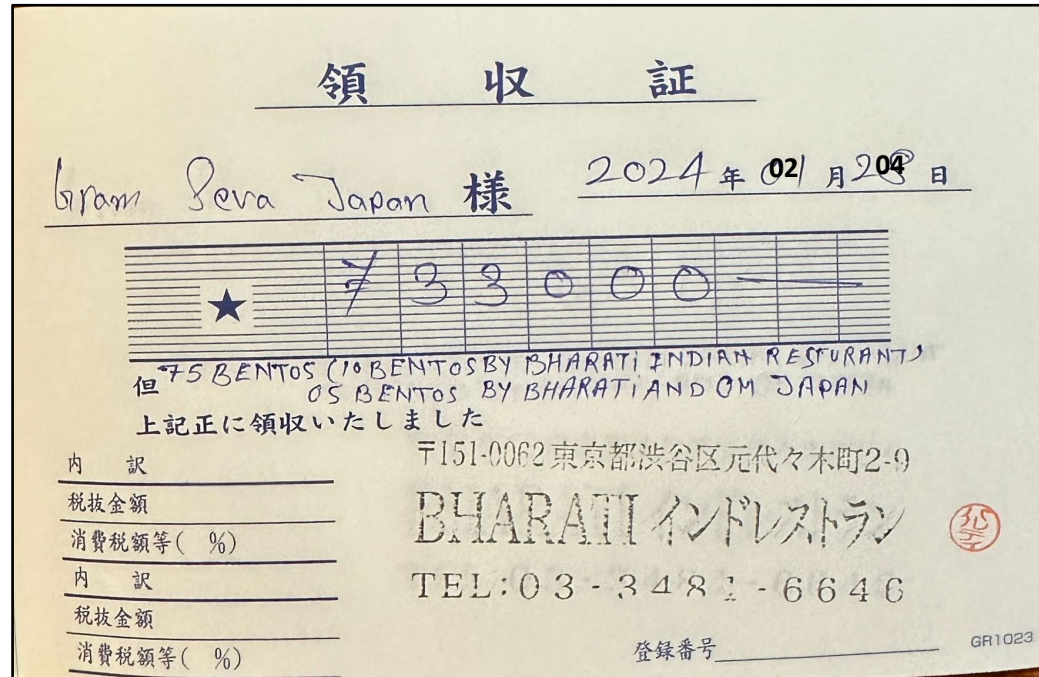 領 収 証
Gram Seva Japan 様 2024 年 02 月 04 日
★ ¥33000—
但 75 BENTOS (10 BENTOS BY BHARATI INDIAN RESTURANT)
05 BENTOS BY BHARATI AND OM JAPAN
上記正に領収いたしました
内 訳
税抜金額
消費税額等( %)
内 訳
税抜金額
消費税額等( %)
〒151-0062 東京都渋谷区元代々木町2-9
BHARATI インドレストラン
TEL:03-3481-6646
登録番号
GR1023